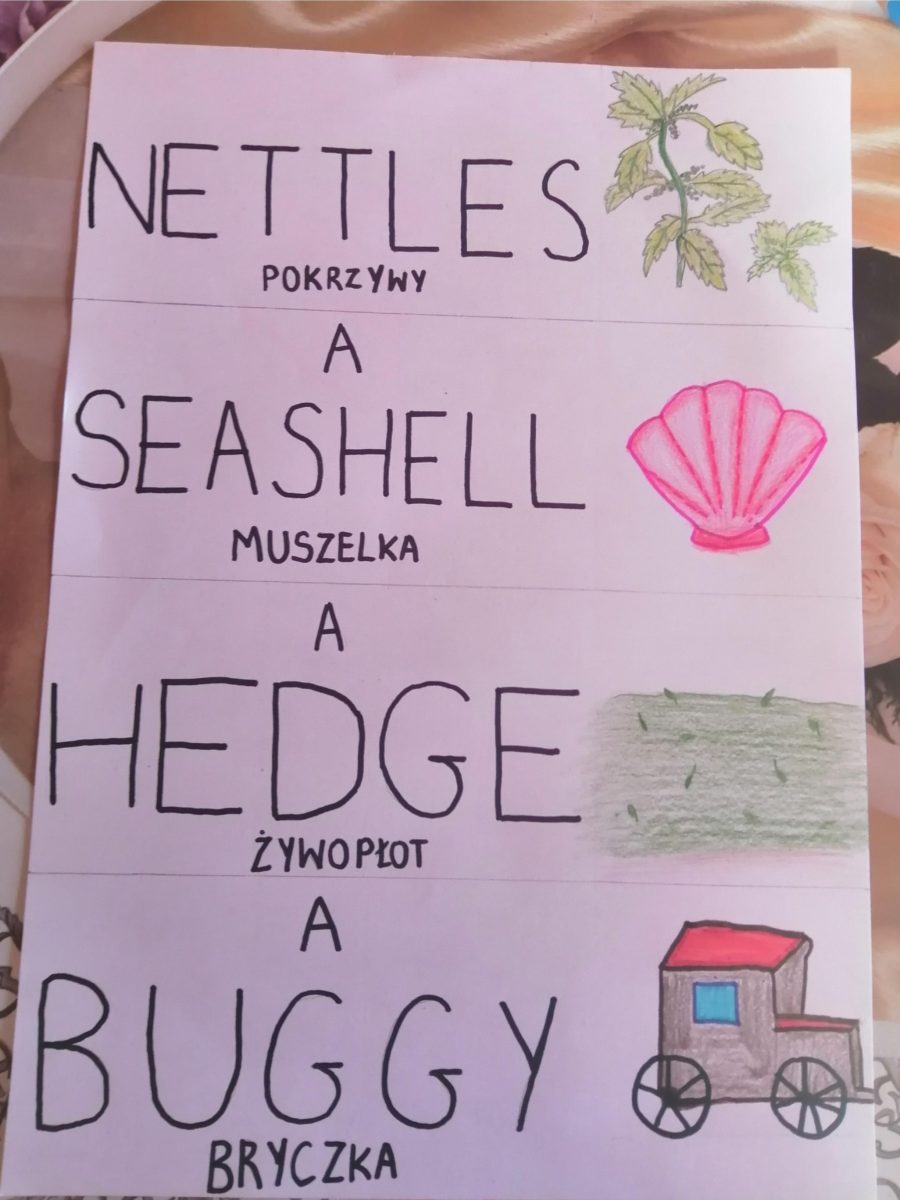 NETTLES
POKRZYWY
A
SEASHELL
MUSZELKA
A
HEDGE
ŻYWOPŁOT
A
BUGGY
BRYCZKA